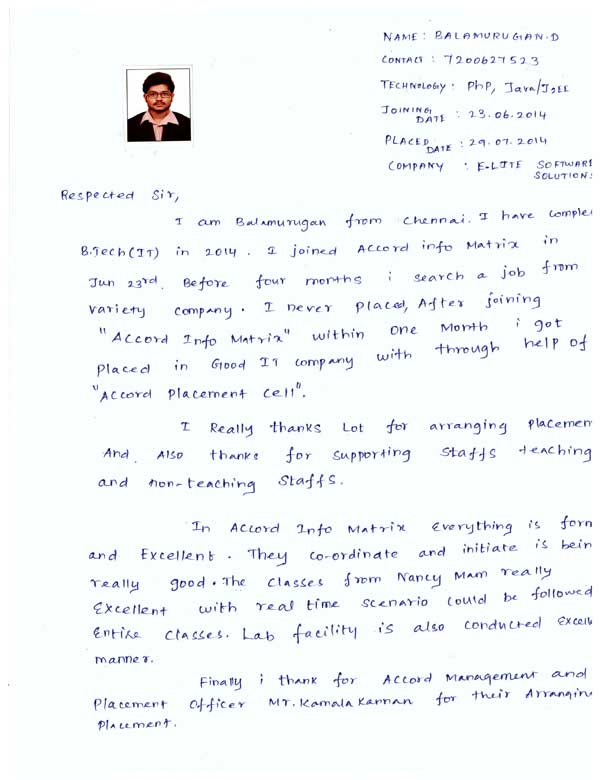 NAME: BALAMURUGAN.D
CONTACT : 7200627523
TECHNOLOGY: PhP, Java/J2EE
JOINING DATE : 23.06.2014
PLACED DATE : 29.07.2014
COMPANY : E-LITE SOFTWARE SOLUTIONS
Respected Sir,
I am Balamurugan from Chennai. I have comple
B.Tech(IT) in 2014. I joined Accord info Matrix in
Jun 23rd. Before four months i search a job from
variety company. I never placed, After joining
"Accord Info Matrix" within one Month i got
placed in Good IT company with through help of
"Accord Placement Cell".
I Really thanks Lot for arranging placemen
And Also thanks for supporting Staffs teaching
and non-teaching Staffs.
In Accord Info Matrix Everything is form
and Excellent. They co-ordinate and initiate is bein
really good. The classes from Nancy Mam really
Excellent with real time scenario could be followed
Entire classes. Lab facility is also conducted Excell
manner.
Finally i thank for Accord Management and
Placement Officer Mr. Kamala Kannan for their Arrangin
Placement.